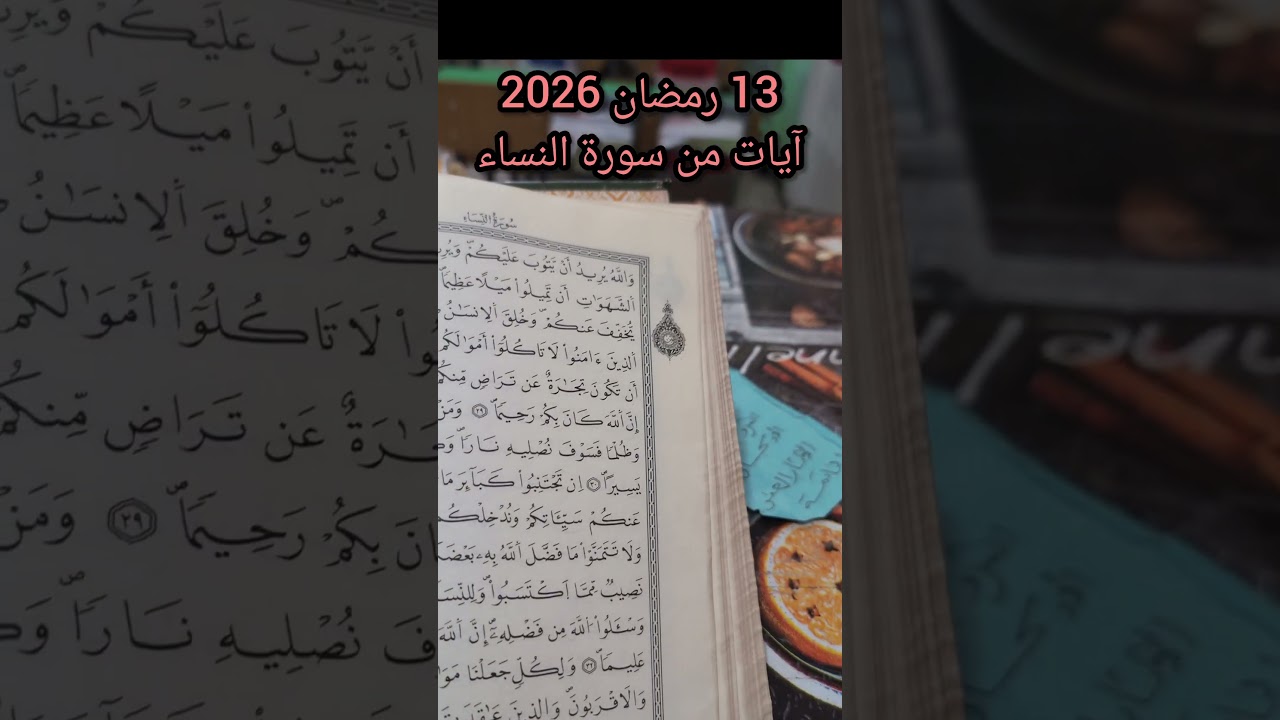 13 رمضان 2026
آيات من سورة النساء
سُورَةُ النِّسَاءِ
وَاللَّهُ يُرِيدُ أَنْ يَتُوبَ عَلَيْكُمْ وَيُرِيـ
الشَّهَوَاتِ أَن تَمِيلُوا مَيْلًا عَظِيمًا
يُخَفِّفَ عَنكُمْ وَخُلِقَ الْإِنسَـٰنُ
الَّذِينَ ءَامَنُوا لَا تَأْكُلُوا أَمْوَٰلَكُم
أَن تَكُونَ تِجَـٰرَةً عَن تَرَاضٍ مِّنكُمْ
إِنَّ اللَّهَ كَانَ بِكُمْ رَحِيمًا ٢٩ وَمَن
وَظُلْمًا فَسَوْفَ نُصْلِيهِ نَارًا وَكَـ
يَسِيرًا ٣٠ إِن تَجْتَنِبُوا كَبَآئِرَ مَا
عَنكُمْ سَيِّـَٔاتِكُمْ وَنُدْخِلْكُم
وَلَا تَتَمَنَّوْا مَا فَضَّلَ اللَّهُ بِهِ بَعْضَكُـ
نَصِيبٌ مِّمَّا اكْتَسَبُوا وَلِلنِّسَا
وَسْـَٔلُوا اللَّهَ مِن فَضْلِهِ إِنَّ اللَّهَ
عَلِيمًا ٣٢ وَلِكُلٍّ جَعَلْنَا مَوَٰ
وَالْأَقْرَبُونَ وَالَّذِينَ عَقَدَتْ